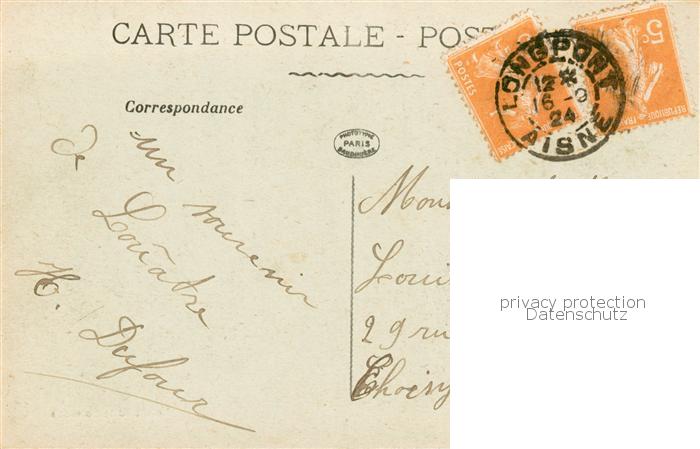 CARTE POSTALE - POS
Correspondance
PHOTOTYPIE
PARIS
un souvenir
de Louâtre
H. Dufour
LONGPONT
12
16 - 9
24
AISNE
POSTES
5c
REPUBLIQUE FRAN
Mon
Loui
29 ru
Choisy
privacy protection
Datenschutz